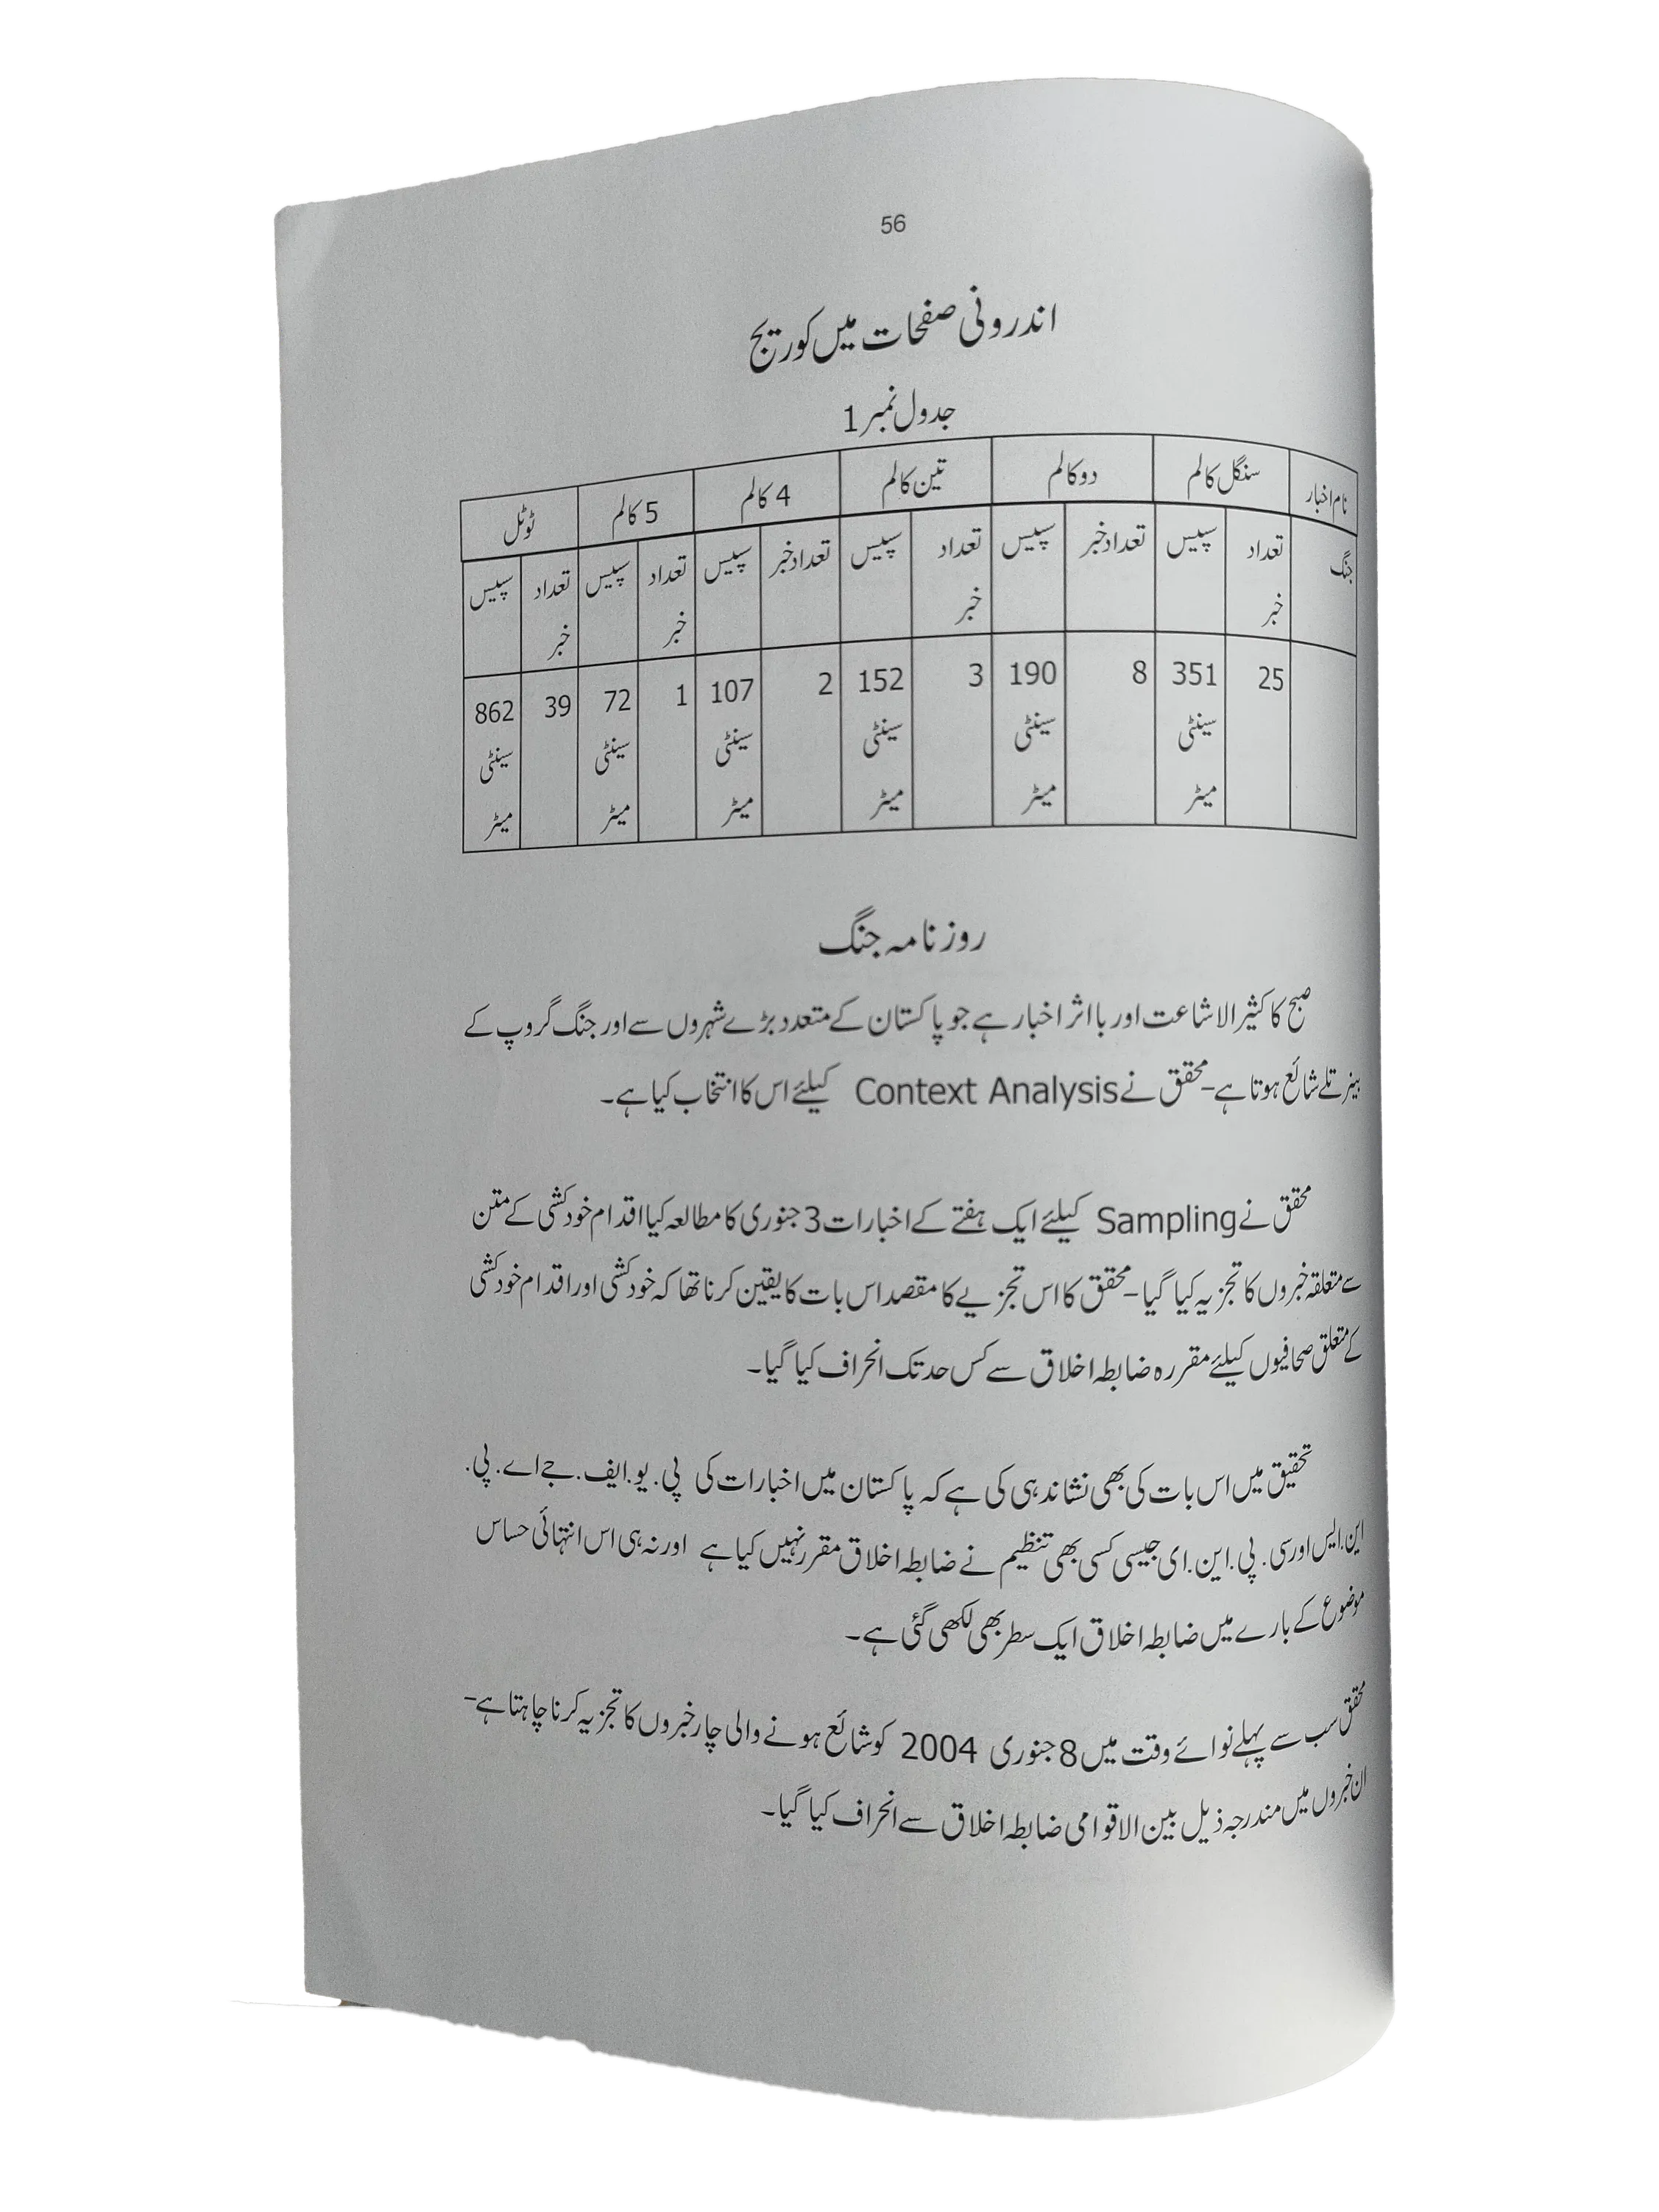 56
اندرونی صفحات میں کوریج
جدول نمبر 1
نام اخبار سنگل کالم دو کالم تین کالم 4 کالم 5 کالم ٹوٹل
جنگ تعداد خبر سپیس تعداد خبر سپیس تعداد خبر سپیس تعداد خبر سپیس تعداد خبر سپیس تعداد خبر سپیس
25 351 سینٹی میٹر 8 190 سینٹی میٹر 3 152 سینٹی میٹر 2 107 سینٹی میٹر 1 72 سینٹی میٹر 39 862 سینٹی میٹر
روزنامہ جنگ
صبح کا کثیر الاشاعت اور بااثر اخبار ہے جو پاکستان کے متعدد بڑے شہروں سے اور جنگ گروپ کے
بینر تلے شائع ہوتا ہے- محقق نے Context Analysis کیلئے اس کا انتخاب کیا ہے۔
محقق نے Sampling کیلئے ایک ہفتے کے اخبارات 3 جنوری کا مطالعہ کیا اقدام خودکشی کے متن
سے متعلقہ خبروں کا تجزیہ کیا گیا- محقق کا اس تجزیے کا مقصد اس بات کا یقین کرنا تھا کہ خودکشی اور اقدام خودکشی
کے متعلق صحافیوں کیلئے مقررہ ضابطہ اخلاق سے کس حد تک انحراف کیا گیا۔
تحقیق میں اس بات کی بھی نشاندہی کی ہے کہ پاکستان میں اخبارات کی پی. یو. ایف. جے اے. پی.
این. ایس اور سی. پی. این. ای جیسی کسی بھی تنظیم نے ضابطہ اخلاق مقرر نہیں کیا ہے اور نہ ہی اس انتہائی حساس
موضوع کے بارے میں ضابطہ اخلاق ایک سطر بھی لکھی گئی ہے۔
محقق سب سے پہلے نوائے وقت میں 8 جنوری 2004 کو شائع ہونے والی چار خبروں کا تجزیہ کرنا چاہتا ہے-
ان خبروں میں مندرجہ ذیل بین الاقوامی ضابطہ اخلاق سے انحراف کیا گیا۔